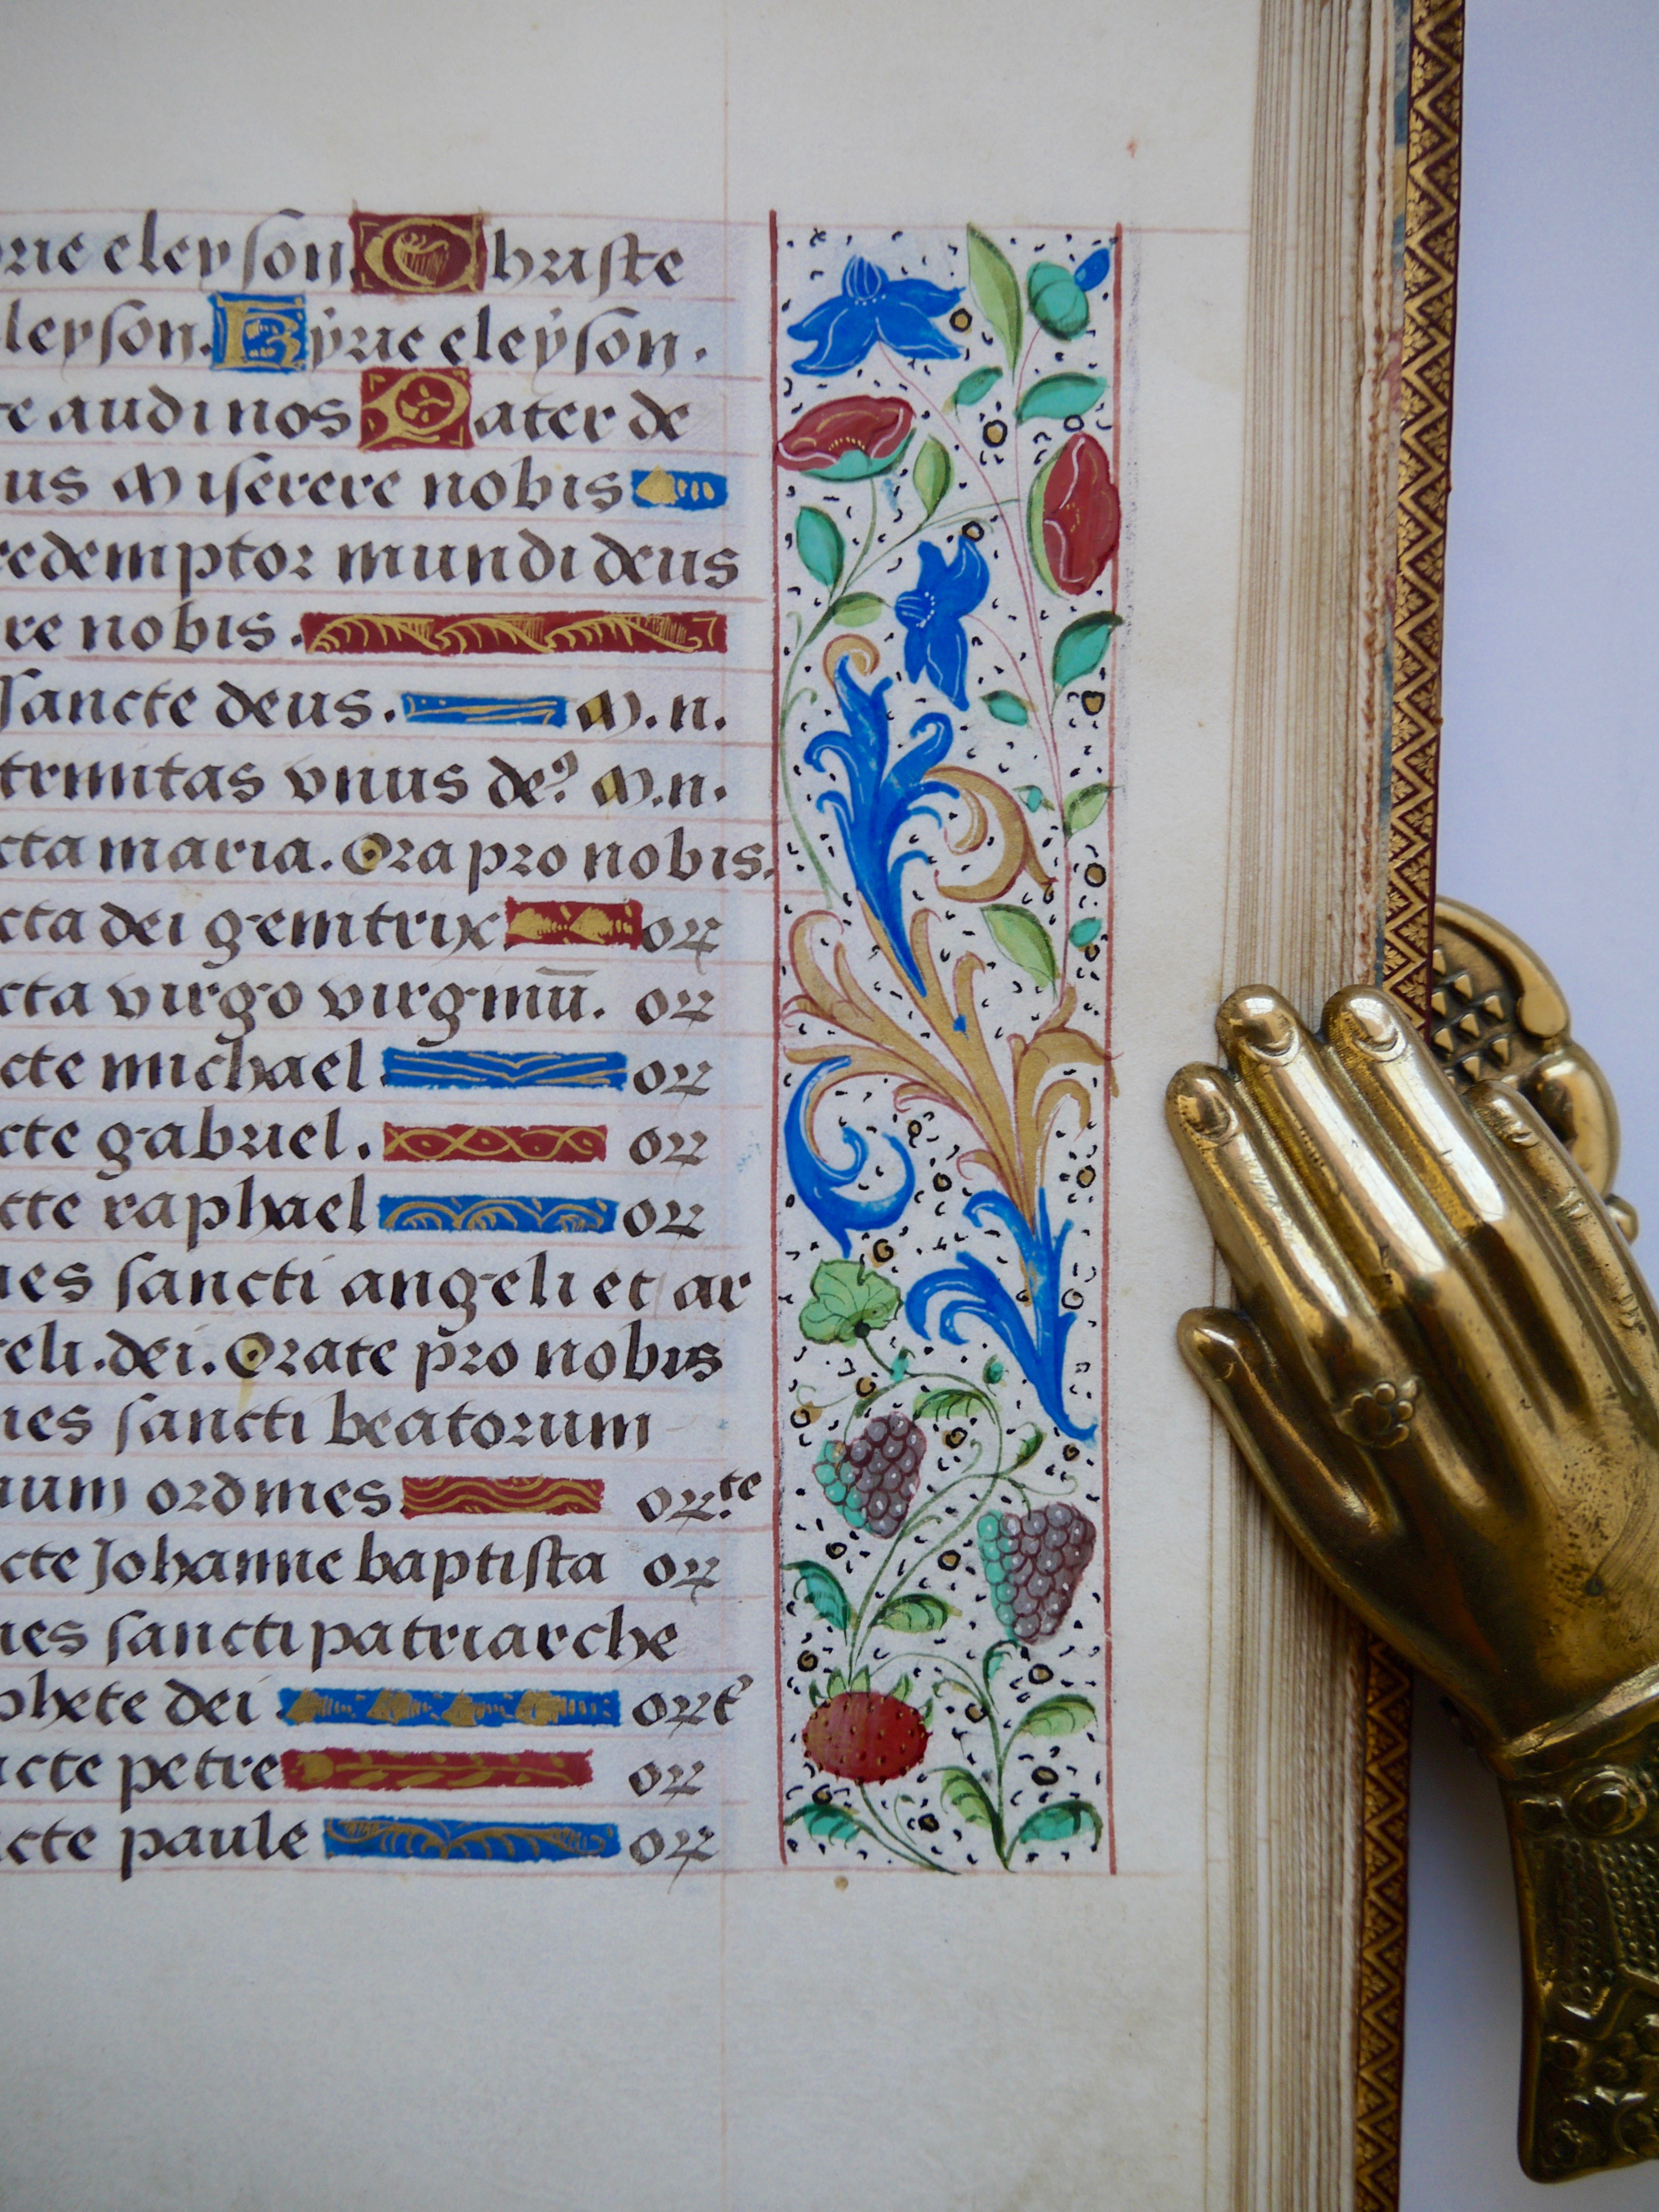 rie eleyson. Christe
leyson. Kyrie eleyson.
te audi nos Pater de
us Miserere nobis
redemptor mundi deus
re nobis.
sancte deus. M.n.
trinitas vnus de⁹ M.n.
cta maria. Ora pro nobis.
cta dei genitrix or
cta virgo virginū. or
cte michael or
cte gabriel. or
cte raphael or
nes sancti angeli et ar
eli.dei. Orate pro nobis
nes sancti beatorum
uum ordines or.te
cte Johanne baptista or
nes sancti patriarche
phete dei ort
cte petre or
cte paule or